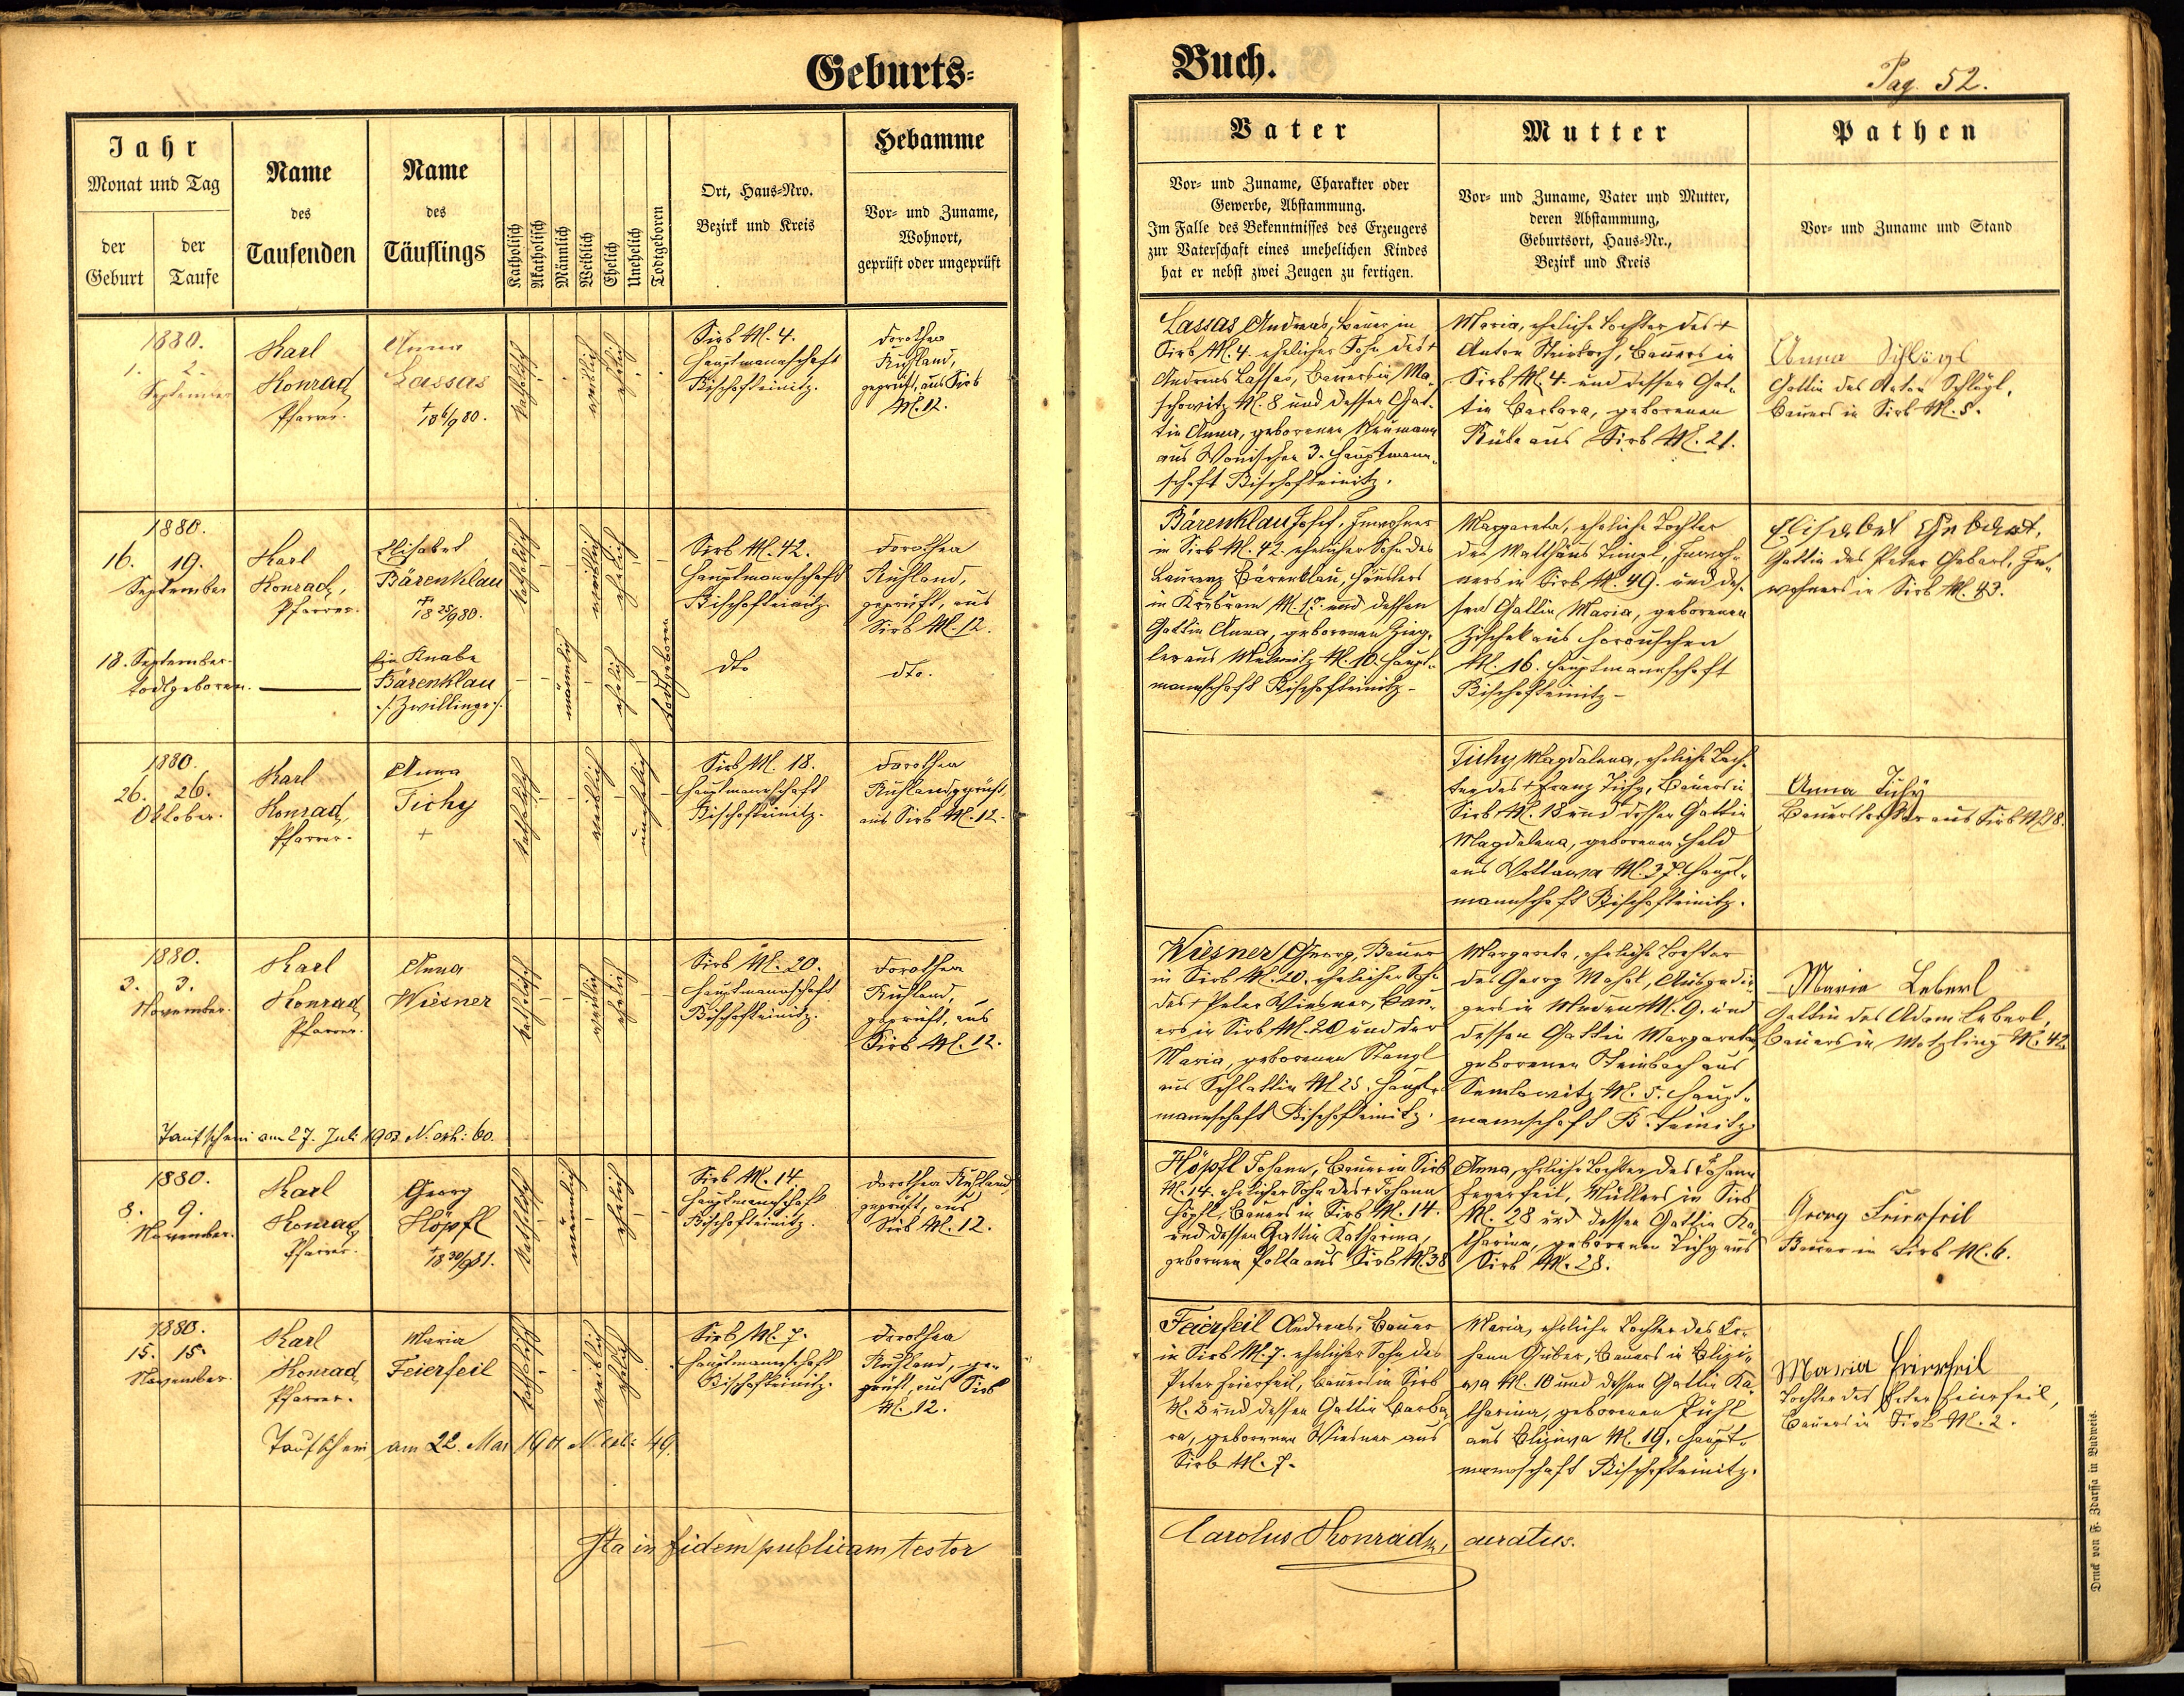 Geburts-
Buch.
Pag. 52.
Jahr
Monat und Tag
der Geburt
der Taufe
Name
des
Taufenden
Name
des
Täuflings
Katholisch
Akatholisch
Männlich
Weiblich
Ehelich
Unehelich
Todtgeboren
Ort, Haus-Nro.
Bezirk und Kreis
Hebamme
Vor- und Zuname,
Wohnort,
geprüft oder ungeprüft
Vater
Vor- und Zuname, Charakter oder
Gewerbe, Abstammung.
Im Falle des Bekenntnisses des Erzeugers
zur Vaterschaft eines unehelichen Kindes
hat er nebst zwei Zeugen zu fertigen.
Mutter
Vor- und Zuname, Vater und Mutter,
deren Abstammung,
Geburtsort, Haus-Nr.,
Bezirk und Kreis
Pathen
Vor- und Zuname und Stand
1880.
1. 2.
September
Karl
Konrad
Pfarrer.
Anna
Lassas
† 18 6/9 80.
katholisch
weiblich
ehelich
Sirb N. 4.
Hauptmannschaft
Bischofteinitz.
Dorothea
Ruhland,
geprüft, aus Sirb
N. 12.
Lassas Andreas, Bauer in
Sirb N. 4. ehelicher Sohn des †
Andreas Lassas, Bauers in Ma-
schowitz N. 8 und dessen Gat-
tin Anna, geborenen Neumann
aus Wonischen 3. Hauptmann-
schaft Bischofteinitz.
Maria, eheliche Tochter des †
Anton, Bauers in
Sirb N. 4. und dessen Gat-
tin Barbara, geborenen
aus Sirb N. 21.
Anna Schlögl
Gattin des Anton Schlögl,
Bauers in Sirb N. 8.
1880.
16. 19.
September
Karl
Konrad,
Pfarrer.
Elisabet
Bärenklau
† 18 25/9 80.
katholisch
weiblich
ehelich
Sirb N. 42.
Hauptmannschaft
Bischofteinitz
Dorothea
Ruhland,
geprüft, aus
Sirb N. 12.
18. September
todtgeboren.
Ein Knabe
Bärenklau
./. Zwillinge ./.
männlich
ehelich
todtgeboren
dto
dto.
Bärenklau Josef, Inwohner
in Sirb N. 42. ehelicher Sohn des
Laurenz Bärenklau, Häuslers
in N. 17. und dessen
Gattin Anna, geborenen Zieg-
ler aus Melmitz N. 10. Haupt-
mannschaft Bischofteinitz -
Margareta, eheliche Tochter
des Matthäus, Inwoh-
ners in Sirb N. 49. und des-
sen Gattin Maria, geborenen
aus Horouschen
N. 16. Hauptmannschaft
Bischofteinitz -
Elisabet Gebert,
Gattin des Peter Gebert, In-
wohners in Sirb N. 43.
1880.
26. 26.
Oktober.
Karl
Konrad,
Pfarrer.
Anna
Tichy
+
katholisch
weiblich
unehelich
Sirb N. 18.
Hauptmannschaft
Bischofteinitz.
Dorothea
Ruhland geprüft,
aus Sirb N. 12.
Tichy Magdalena, eheliche Toch-
ter des † Franz Tichy, Bauers in
Sirb N. 18 und dessen Gattin
Magdalena, geborenen Held
aus Wottawa N. 37. Haupt-
mannschaft Bischofteinitz.
Anna Tichy
Bauerstochter aus Sirb N. 18.
1880.
3. 3.
November.
Karl
Konrad
Pfarrer.
Anna
Wiesner
katholisch
weiblich
ehelich
Sirb N. 20.
Hauptmannschaft
Bischofteinitz.
Dorothea
Ruhland,
geprüft, aus
Sirb N. 12.
Taufschein am 27. Juli 1903 N. exh: 60.
Wiesner Georg, Bauer
in Sirb N. 20. ehelicher Sohn
des † Peter Wiesner, Bau-
ers in Sirb N. 20 und der
Maria, geborenen Stangl
aus Schlattin N. 25. Haupt-
mannschaft Bischofteinitz.
Margareta, eheliche Tochter
des Georg, Ausgedin-
gers in N. 9. und
dessen Gattin Margareta,
geborenen Steinbach aus
Semlowitz N. 5. Haupt-
mannschaft B. Teinitz.
Maria Leberl
Gattin des Adam Leberl,
Bauers in Metzling N. 42.
1880.
8. 9.
November.
Karl
Konrad
Pfarrer.
Georg
Höpfl
† 18 30/9 81.
katholisch
männlich
ehelich
Sirb N. 14
Hauptmannschaft
Bischofteinitz.
Dorothea Ruhland
geprüft, aus
Sirb N. 12.
Höpfl Johann, Bauer in Sirb
N. 14. ehelicher Sohn des † Johann
Höpfl, Bauers in Sirb N. 14.
und dessen Gattin Katharina,
geborenen Polta aus Sirb N. 38
Anna, eheliche Tochter des Johann
Feierfeil, Müllers in Sirb
N. 28 und dessen Gattin Ka-
tharina, geborenen Tichy aus
Sirb N. 28.
Georg Feierfeil
Bauer in Sirb N. 6.
1880.
15. 15.
November.
Karl
Konrad
Pfarrer.
Maria
Feierfeil
katholisch
weiblich
ehelich
Sirb N. 7.
Hauptmannschaft
Bischofteinitz.
Dorothea
Ruhland, ge-
prüft, aus Sirb
N. 12.
Taufschein am 22. Mai N. exh: 49.
Feierfeil Andreas, Bauer
in Sirb N. 7. ehelicher Sohn des
Peter Feierfeil, Bauers in Sirb
N. 2 und dessen Gattin Barba-
ra, geborenen Wiesner aus
Sirb N. 7.
Maria, eheliche Tochter des Jo-
hann Gruber, Bauers in Blizi-
wa N. 10 und dessen Gattin Ka-
tharina, geborenen
aus Bliziwa N. 19. Haupt-
mannschaft Bischofteinitz.
Maria Feierfeil
Tochter des Peter Feierfeil,
Bauers in Sirb N. 2.
Ita in fidem publicam testor
Carolus Konrad, curatus.
Druck von F. Zdarssa in Budweis.